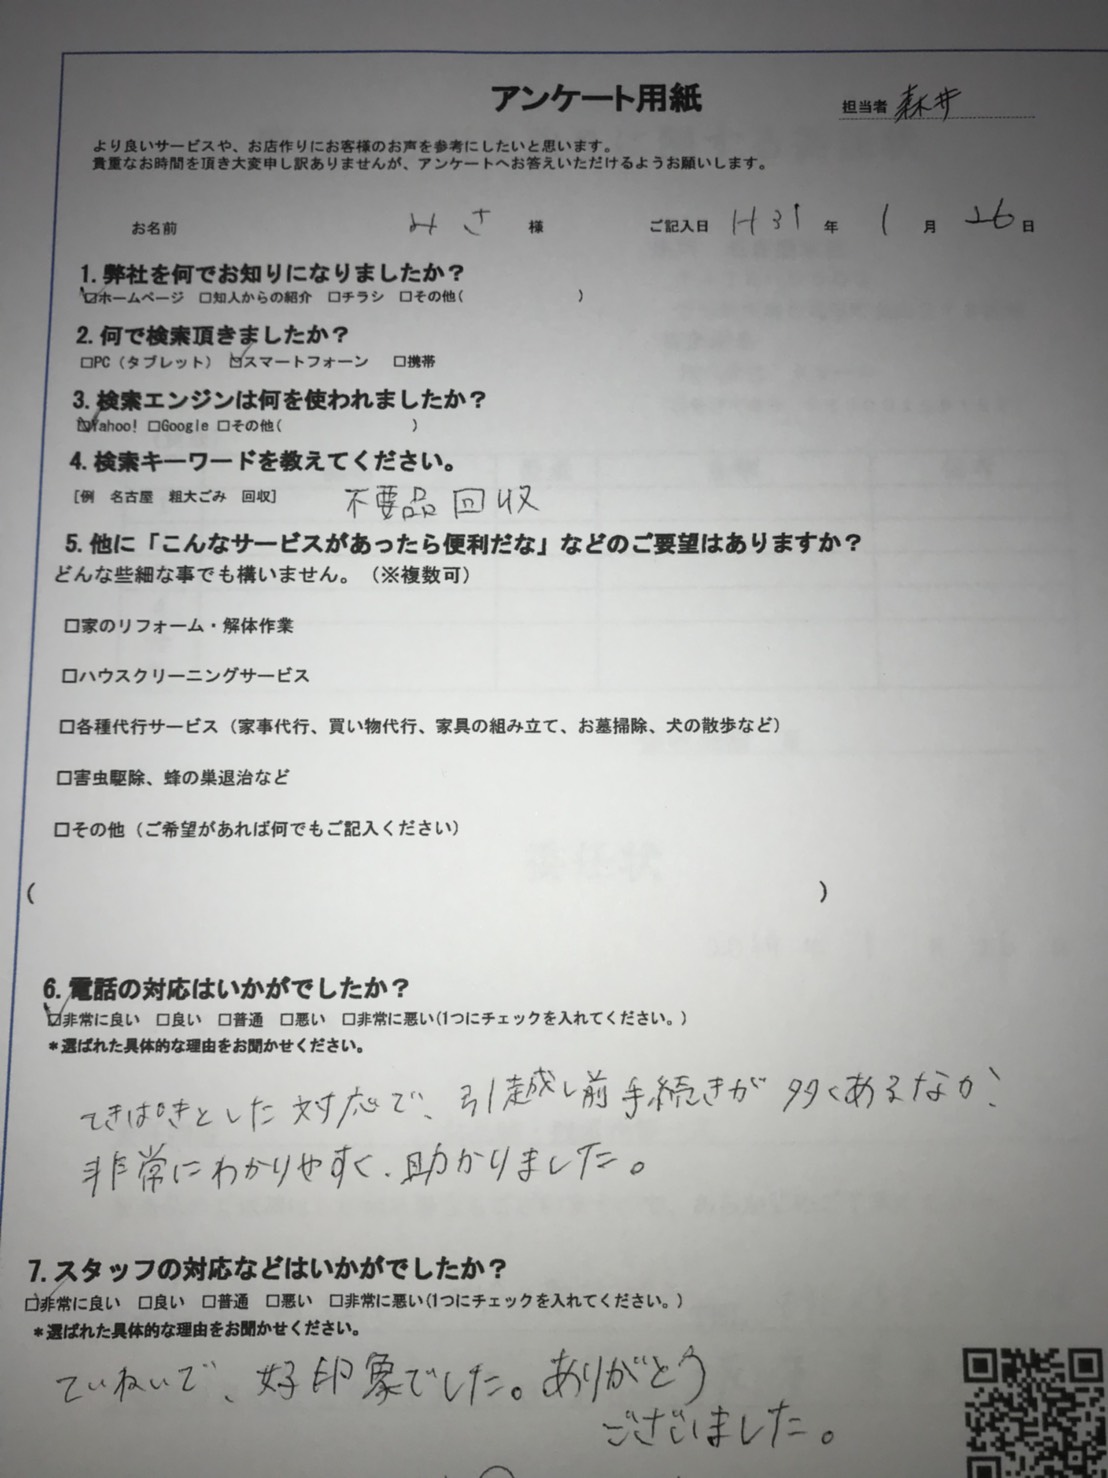 アンケート用紙
担当者 森井
より良いサービスや、お店作りにお客様のお声を参考にしたいと思います。
貴重なお時間を頂き大変申し訳ありませんが、アンケートへお答えいただけるようお願いします。
お名前 みさ 様 ご記入日 H31 年 1 月 26 日
1. 弊社を何でお知りになりましたか？
☑ホームページ □知人からの紹介 □チラシ □その他( )
2. 何で検索頂きましたか？
□PC（タブレット） ☑スマートフォーン □携帯
3. 検索エンジンは何を使われましたか？
☑Yahoo! □Google □その他( )
4. 検索キーワードを教えてください。
[例 名古屋 粗大ごみ 回収] 不要品回収
5. 他に「こんなサービスがあったら便利だな」などのご要望はありますか？
どんな些細な事でも構いません。（※複数可）
□家のリフォーム・解体作業
□ハウスクリーニングサービス
□各種代行サービス（家事代行、買い物代行、家具の組み立て、お墓掃除、犬の散歩など）
□害虫駆除、蜂の巣退治など
□その他（ご希望があれば何でもご記入ください）
( )
6. 電話の対応はいかがでしたか？
☑非常に良い □良い □普通 □悪い □非常に悪い(1つにチェックを入れてください。)
＊選ばれた具体的な理由をお聞かせください。
てきぱきとした対応で、引越し前手続きが多くあるなか、
非常にわかりやすく、助かりました。
7. スタッフの対応などはいかがでしたか？
☑非常に良い □良い □普通 □悪い □非常に悪い(1つにチェックを入れてください。)
＊選ばれた具体的な理由をお聞かせください。
ていねいで、好印象でした。ありがとう
ございました。